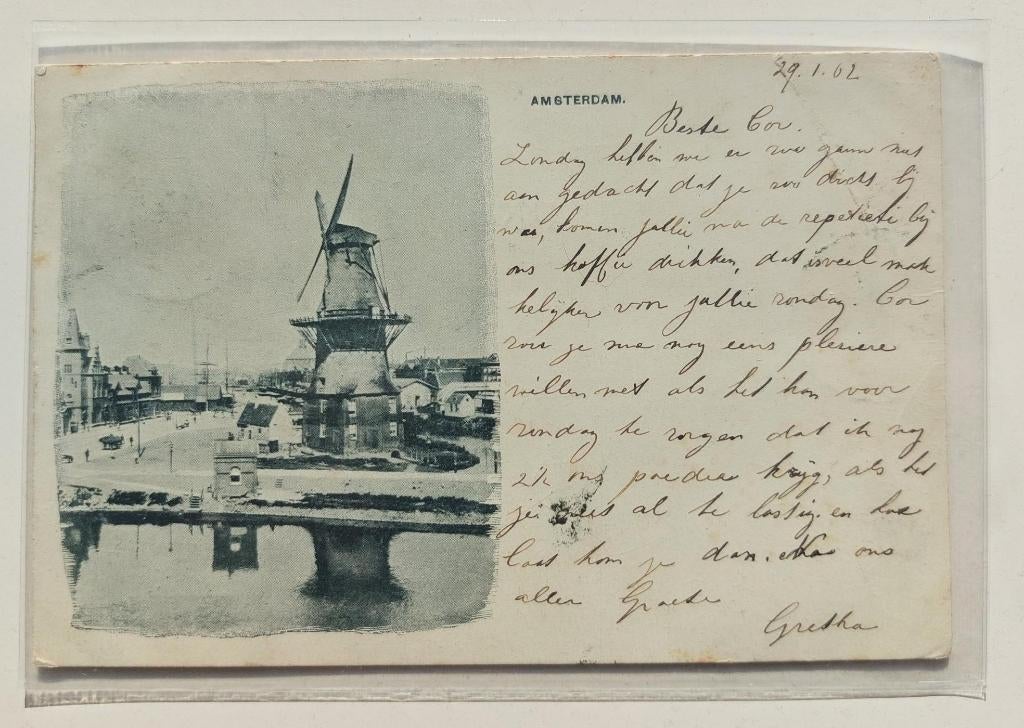 29.1.02
AMSTERDAM.
Beste Cor.
Zondag hebben we er zoo gauw niet
aan gedacht dat je zoo dicht bij
was, komen jullie na de repetitie bij
ons koffie drikken, dat is veel mak
kelijker voor jullie zondag. Cor
zou je me nog eens pleziere
willen met als het kan voor
zondag te zorgen dat ik nog
2½ ons poedea krijg, als het
je niet al te lastig. en hoe
laat kom je dan. Na ons
aller Groete
Gretha